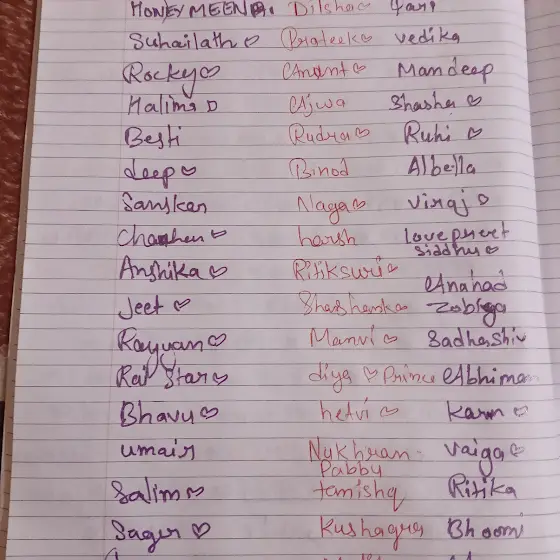 HONEY MEENA. Dilsha Pari
Suhailath ♡ Prateek ♡ vedika
Rocky ♡ Anant ♡ Mandeep
Halima Ajwa Shasha ♡
Besti Rudra ♡ Ruhi ♡
deep ♡ Binod Albella
Sanskar Naga ♡ viraj ♡
♡ harsh Lovepreet
Siddhu ♡
Anshika ♡ Ritiksuri ♡
Anahad
Jeet ♡ Shashanka
Rayyan ♡ Manvi ♡ Sadhashiv
Rai Star ♡ diya ♡ Prince Abhiman
Bhavu ♡ hetvi ♡ Karm ♡
umair Nukhran Vaiga ♡
Pabby
Salim ♡ tanishq Ritika
Sager ♡ Kushagra Bhoomi